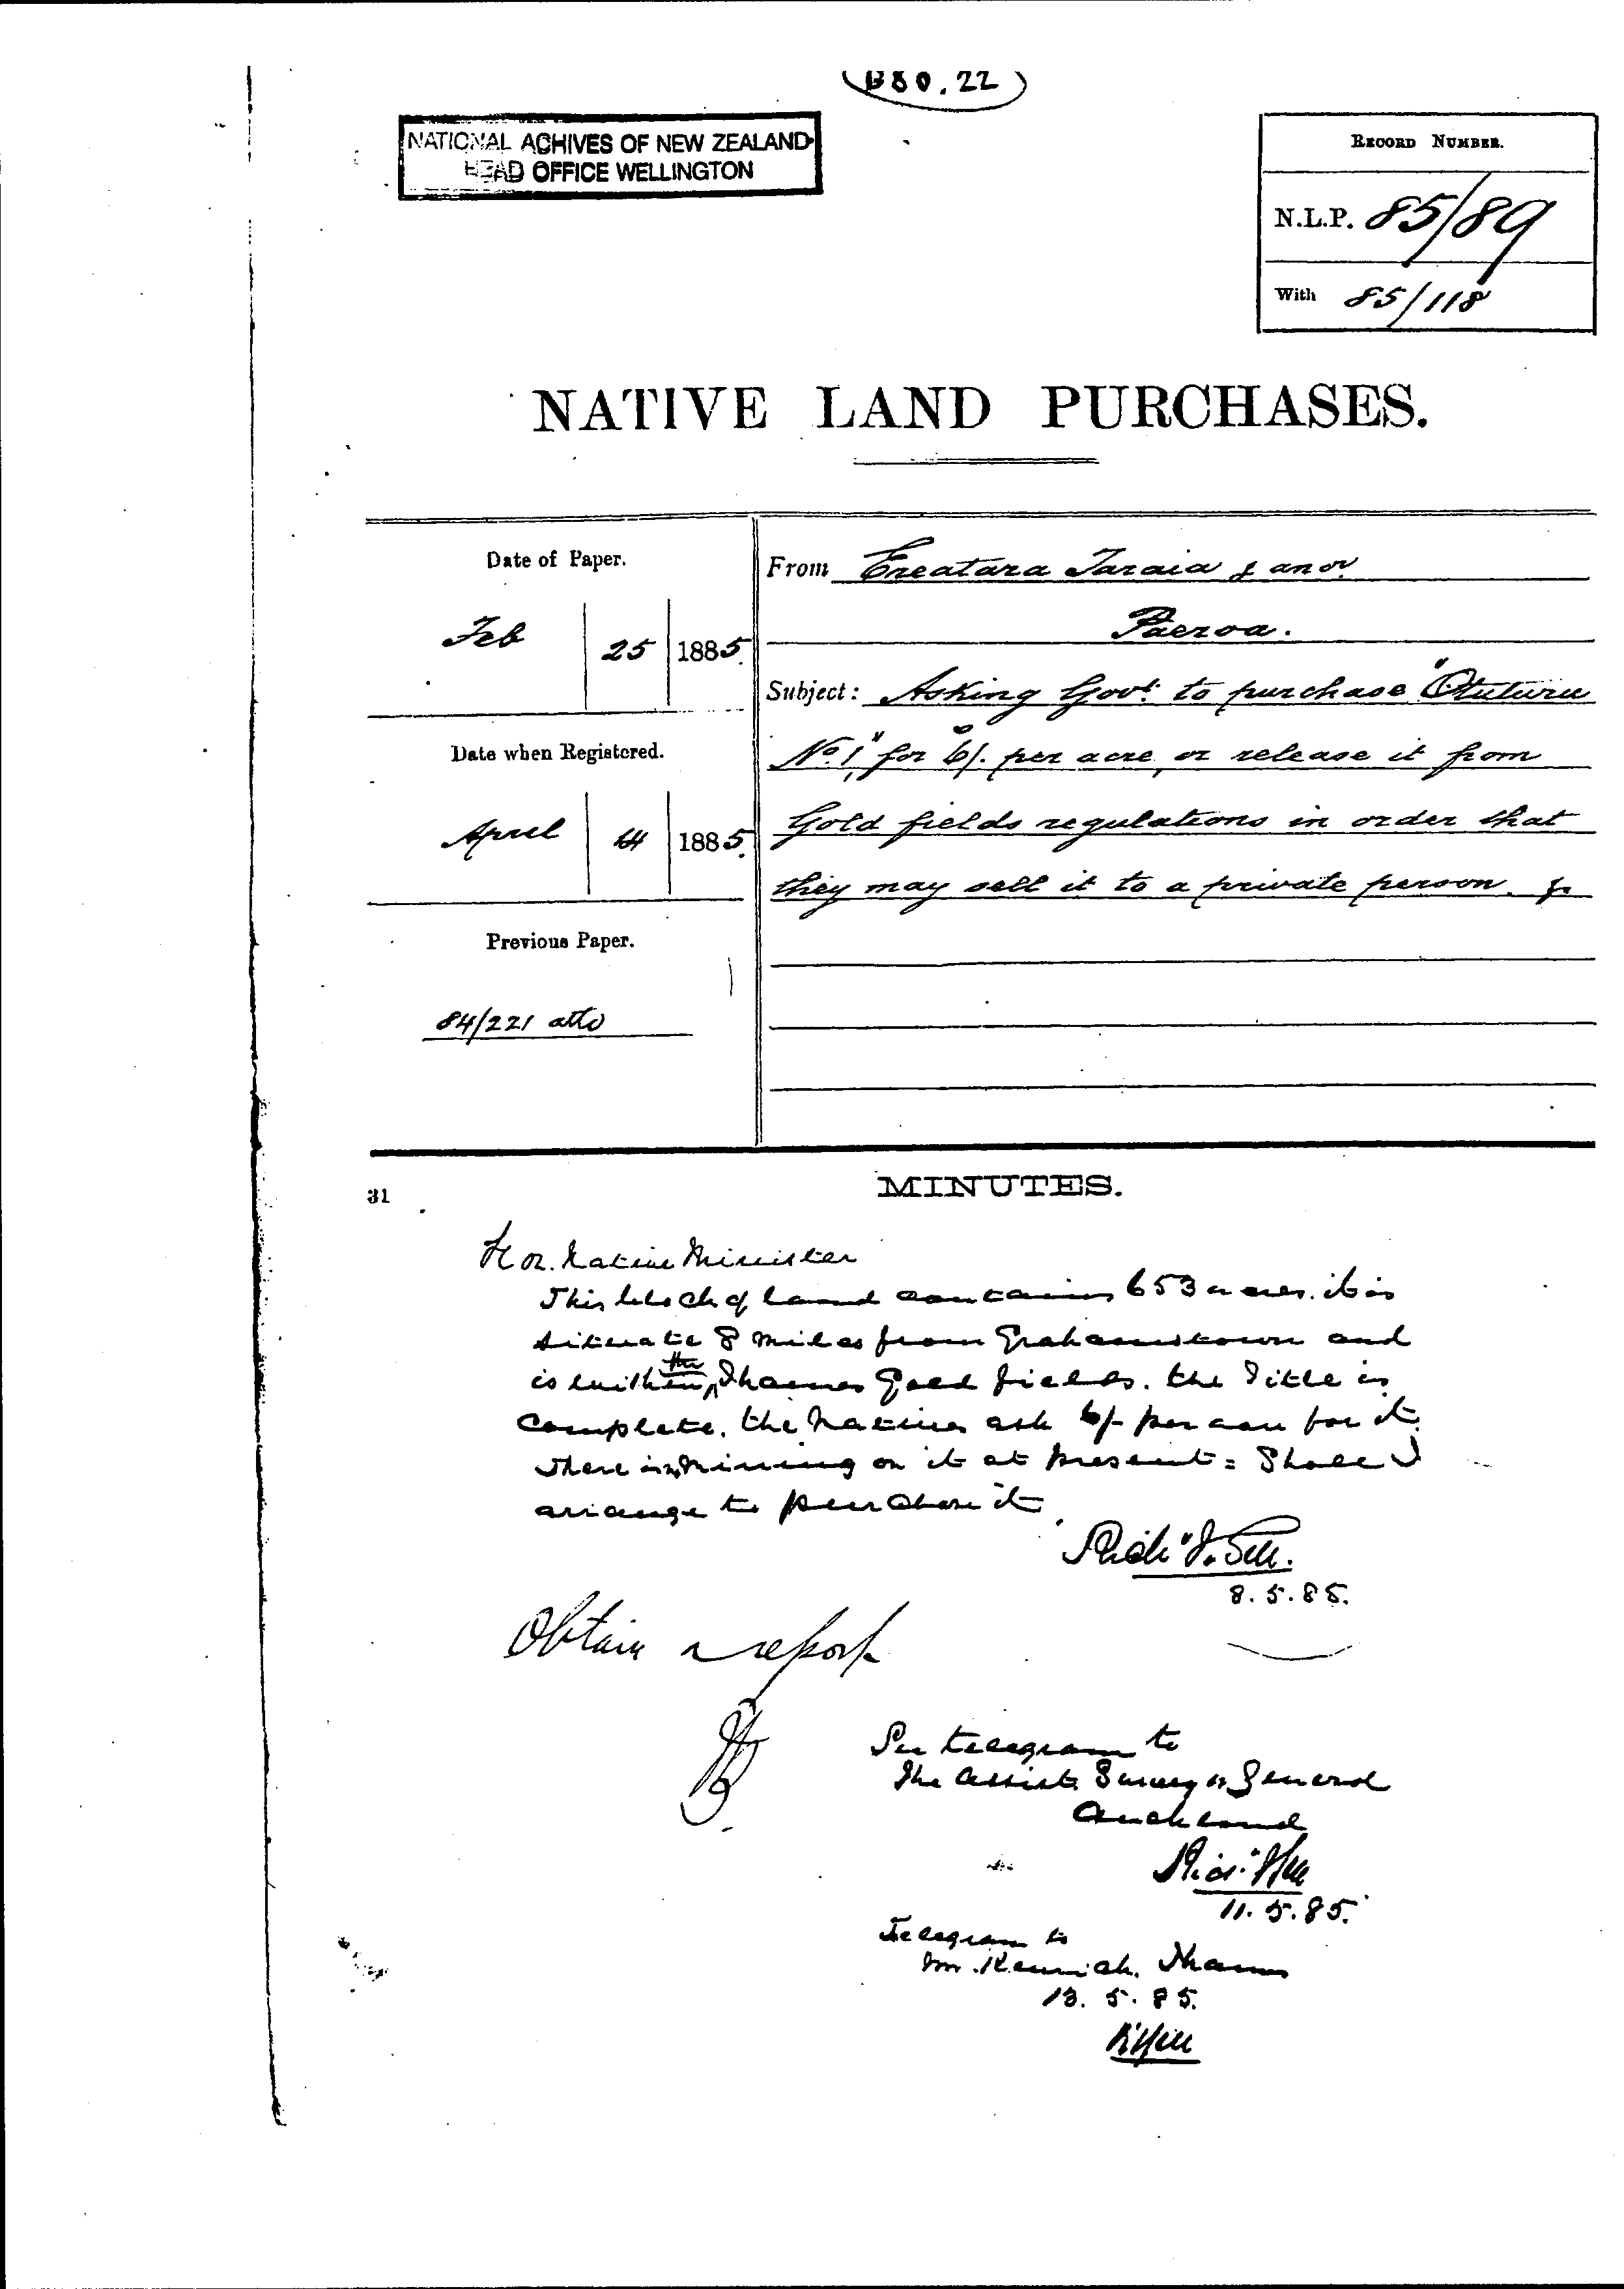 B80.22
NATIONAL ACHIVES OF NEW ZEALAND
HEAD OFFICE WELLINGTON
RECORD NUMBER.
N.L.P. 85/89
With 85/118
NATIVE LAND PURCHASES.
Date of Paper.
Feb 25 1885.
Date when Registered.
April 14 1885.
Previous Paper.
84/221 attd
From Ereatara Taraia & anor
Paeroa.
Subject: Asking Govt. to purchase "Otuturu
No. 1" for 6/. per acre, or release it from
Gold fields regulations in order that
they may sell it to a private person. &c
31
MINUTES.
Hon. Native Minister
This block of land contains 653 acres. it is
situate 8 miles from Grahamstown and
is within the Thames Gold fields. the Title is
complete. the Natives ask 6/- per acre for it.
There is mining on it at present = Shall I
arrange to purchase it
Richd J. Gill.
8.5.85.
Obtain a report
JB
See telegram to
the Assist. Surveyor General
Auckland
Richd J Gill
11.5.85.
Telegram to
Mr. Kenrick. Thames
13.5.85.
RJGill